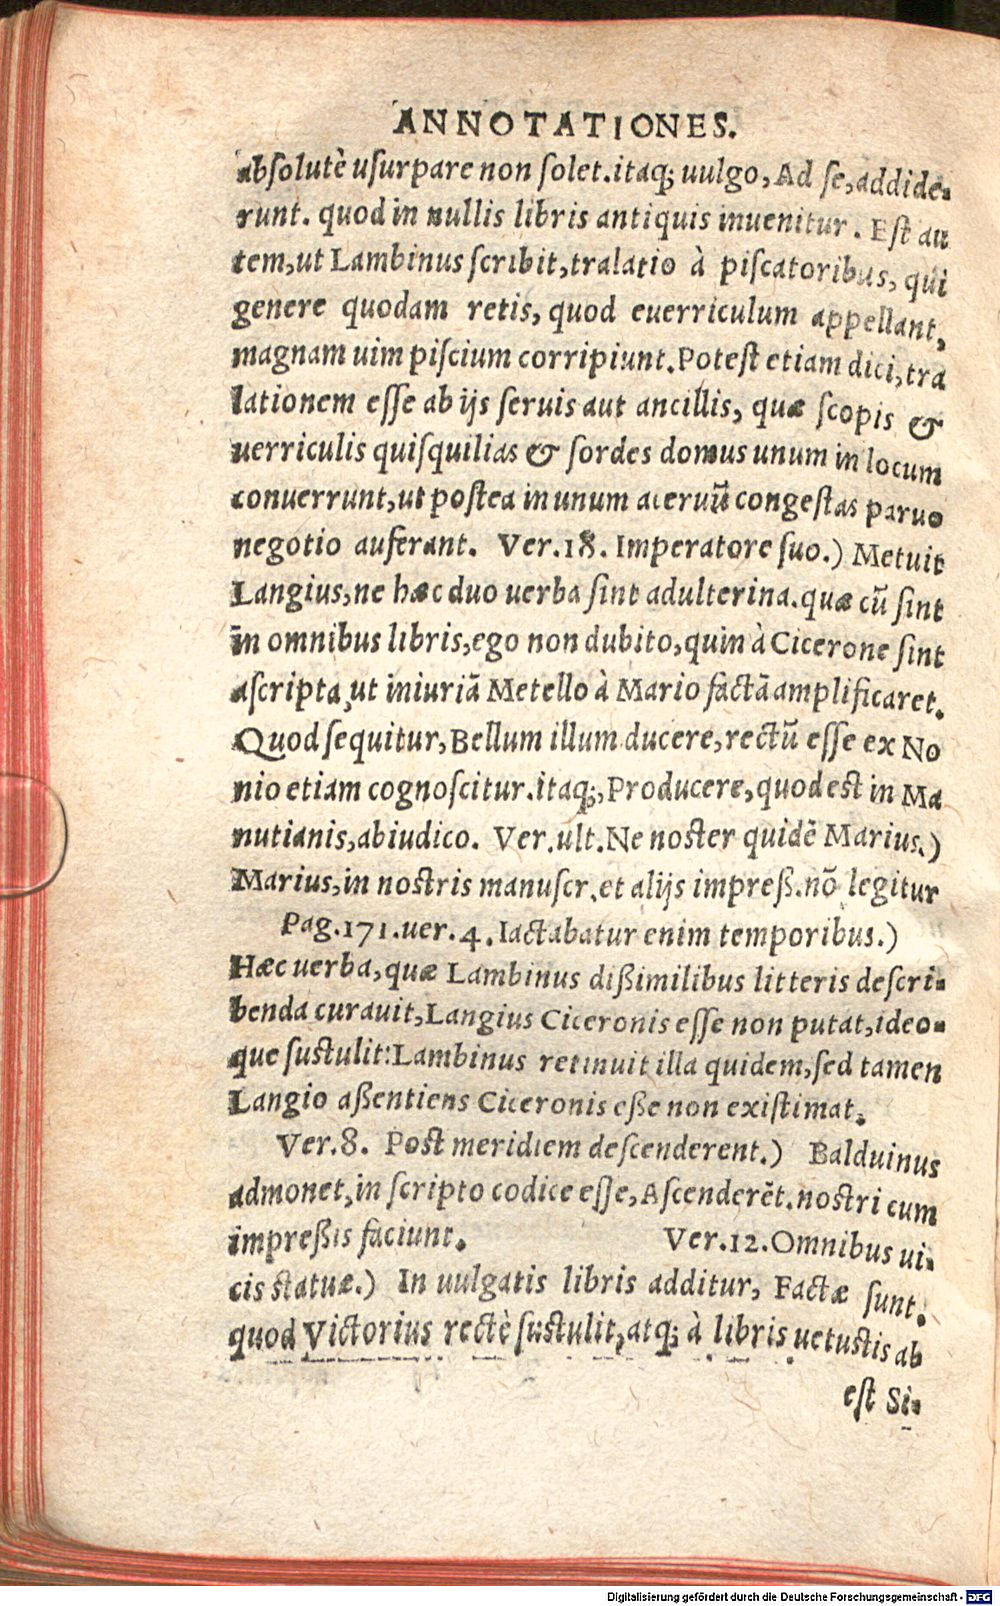 ANNOTATIONES.
absolutè usurpare non solet.itaq; uulgo, Ad se, addide-
runt. quod in nullis libris antiquis inuenitur. Est au
tem, ut Lambinus scribit, tralatio à piscatoribus, qui
genere quodam retis, quod euerriculum appellant,
magnam uim piscium corripiunt. Potest etiam dici, tra
lationem esse ab ijs seruis aut ancillis, quæ scopis &
uerriculis quisquilias & sordes domus unum in locum
conuerrunt, ut postea in unum aceruū congestas paruo
negotio auferant. Ver.18. Imperatore suo.) Metuit
Langius, ne hæc duo uerba sint adulterina. quæ cū sint
in omnibus libris, ego non dubito, quin à Cicerone sint
ascripta, ut iniuriā Metello à Mario factā amplificaret.
Quod sequitur, Bellum illum ducere, rectū esse ex No
nio etiam cognoscitur. itaq;, Producere, quod est in Ma
nutianis, abiudico. Ver.ult. Ne noster quidē Marius.)
Marius, in nostris manuscr. et alijs impreß. nō legitur
Pag.171.uer.4. Iactabatur enim temporibus.)
Hæc uerba, quæ Lambinus dißimilibus litteris descri-
benda curauit, Langius Ciceronis esse non putat, ideo-
que sustulit: Lambinus retinuit illa quidem, sed tamen
Langio aßentiens Ciceronis eße non existimat.
Ver.8. Post meridiem descenderent.) Balduinus
admonet, in scripto codice esse, Ascenderēt. nostri cum
impreßis faciunt. Ver.12. Omnibus ui-
cis statuæ.) In uulgatis libris additur, Factæ sunt.
quod Victorius rectè sustulit, atq; à libris uetustis ab
est Si-
Digitalisierung gefördert durch die Deutsche Forschungsgemeinschaft - DFG